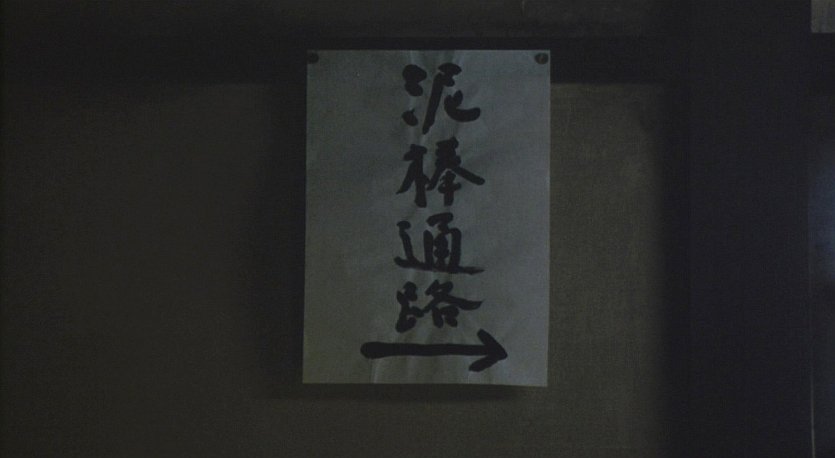 泥棒通路
→